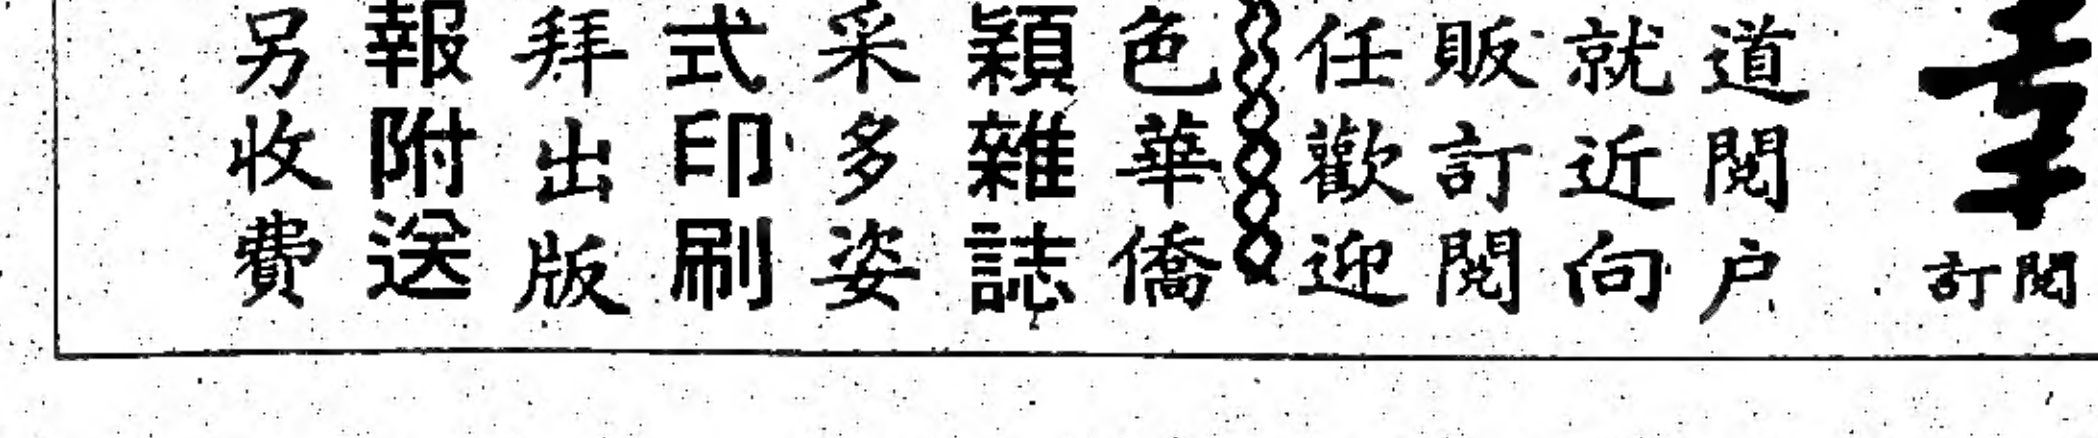 訂閱
道閱户
就近向
販訂閱
任歡迎
色華僑
穎雜誌
采多姿
式印刷
拜出版
報附送
另收費